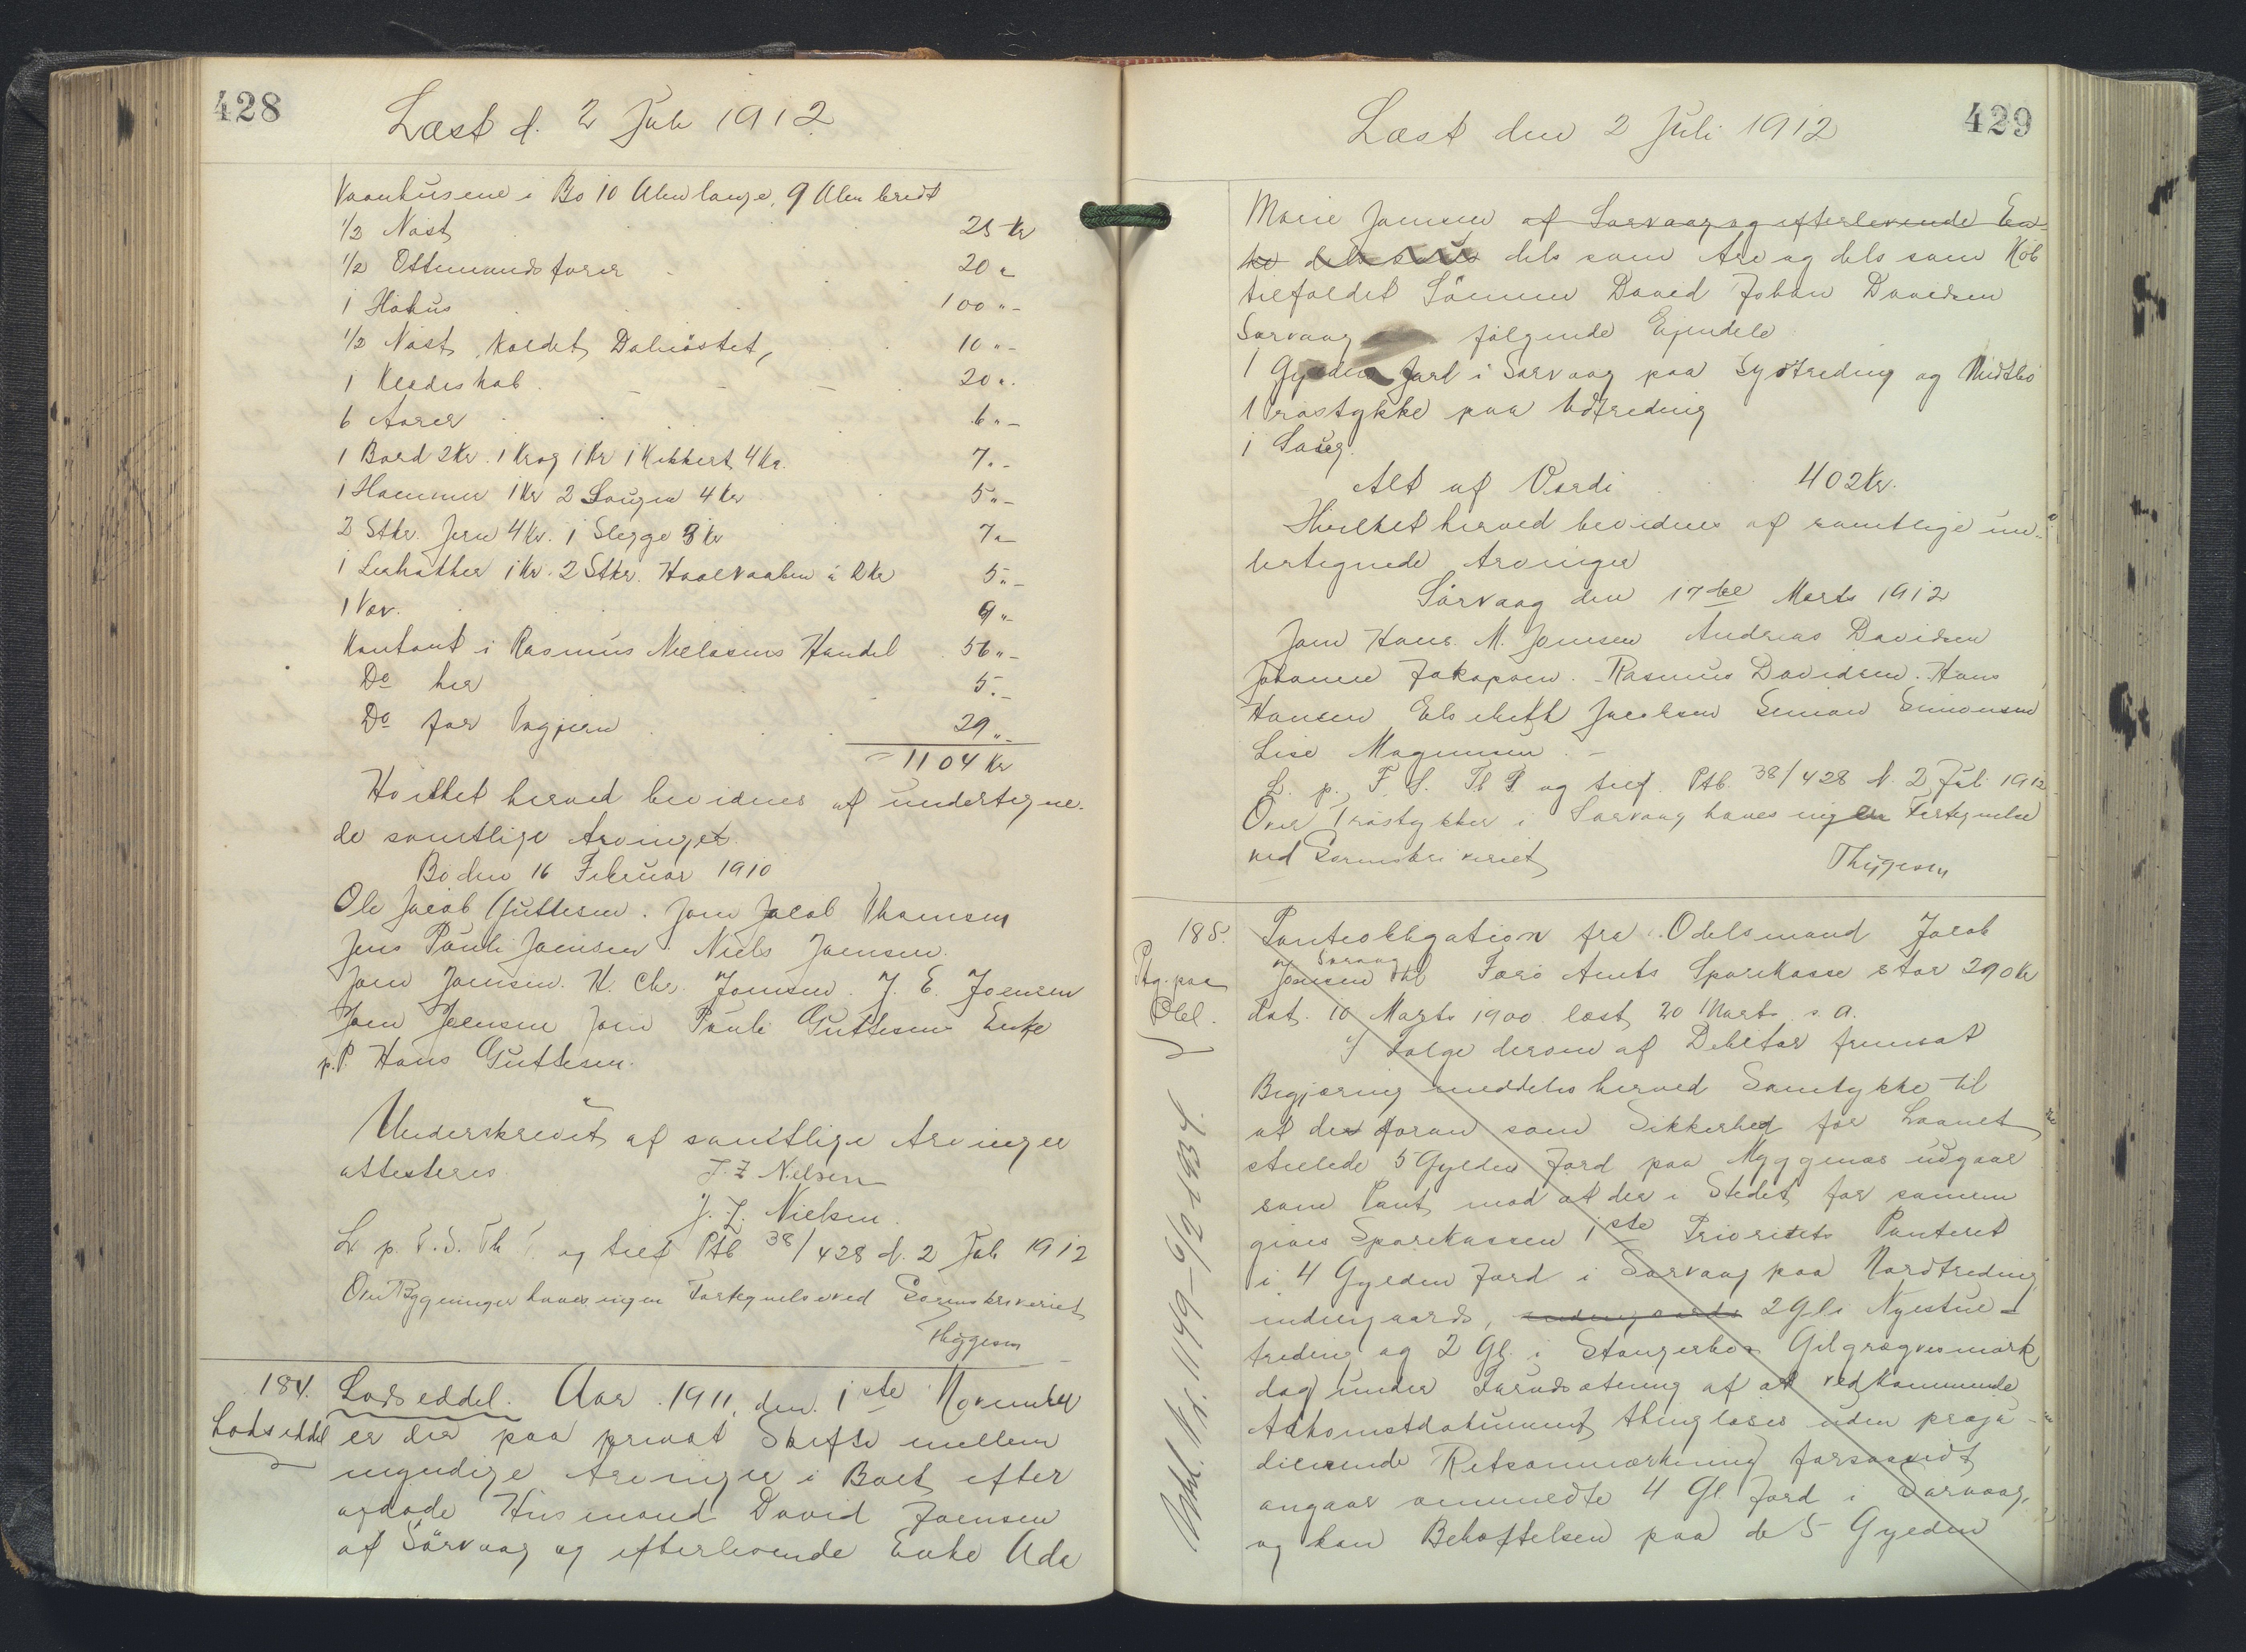 428
Læst d. 2 Juli 1912
Vaanhusene i Bø 10 Alen lange, 9 Alen bredt
1/2 Nøst 25 Kr
1/2 Ottemandsfarer 20 "
1 Hohus 100 "-
1/2 Nøst, kaldet Dalnøstet, 10 "-
1 Klædeskab 20 ".
6 Aarer 6 "-
1 Bord 2 Kr. 1 Krog 1 Kr 1 Kikkert 4 Kr. 7 "-
1 Hammer 1 Kr 2 Lougen 4 Kr 5 "-
2 Stkr. Jern 4 Kr. 1 Slegge 3 Kr 7 "
1 1 Kr. 2 Stkr. Hvalvaaben a 2 Kr 5 "-
1 Væv. 9 "-
Kontant i Rasmus Nielsens Handel 56 "-
Do her 5 "-
Do for 29 "-
1104 Kr
Hvilket herved bevidnes af undertegne-
de samtlige Arvinger.
Bø den 16 Februar 1910
Ole Jacob Guttesen. Joen Jacob Thomsen
Jens Pauli Joensen. Niels Joensen.
Joen Joensen. H. Chr. Joensen. J. E. Joensen
Joen Joensen Joen Pauli Guttesens Enke
p.P. Hans Guttesen.
Underskrevet af samtlige Arvinger
attesteres. J. Z Nielsen
J. Z. Nielsen.
L. p. F. S. Th T. og tilf Ptb 38/428 d. 2 Juli 1912
Over Bygninger haves ingen Fortegnelse ved Sorenskriveriet
Thygesen
184. Lodseddel. Aar 1911, den 1ste November
Lodseddel er der paa privat Skifte mellem
myndige Arvinger i Boet efter
afdøde Husmand David Joensen
af Sörvaag og efterlevende Enke Ada
429
Læst den 2 Juli 1912
Marie Joensen af Sørvaag og efterlevende En-
ke dels som Arv og dels som Køb
tilfaldet Sönnen David Johan Davidsen
Sørvaag følgende Ejendele
1 Gylden Jord i Sørvaag paa Systreding og Midtbø
1 Trøstykke paa Udtreding
1 Saug.
Alt af Værdi 402 Kr.
Hvilket herved bevidnes af samtlige un-
dertegnede Arvinger
Sörvaag den 17de Marts 1912
Joen Hans M. Joensen Andreas Davidsen
Johanne Jakopsen. Rasmus Davidsen. Hans
Hansen Elsebeth Jacobsen Simon Simonsen
Lise Magnusen. -
L. p. F. S. Th T og tilf. Ptb 38/428 d. 2 Juli 1912
Over Trøstykker i Sørvaag haves ingen Fortegnelse
ved Sorenskriveriet Thygesen
185. Panteobligation fra Odelsmand Jacob
Ptg. paa Joensen Sørvaag til Færø Amts Sparekasse stor 290 Kr
Obl. dat. 10 Marts 1900 læst 20 Marts s. A.
I Følge derom af Debitor fremsat
Begjæring meddeles herved Samtykke til
at den foran som Sikkerhed for Laanet
stillede 5 Gylden Jord paa Myggenæs udgaar
som Pant mod at der i Stedet for samme
gives Sparekassen 1ste Prioritets Panteret
i 4 Gylden Jord i Sørvaag paa Nordtreding
indengaards, indengaards 2 Gl i Nyestue-
treding og 2 Gl. i Stangerbø Gilgrøgvesmark
dog under Forudsætning af at vedkommende
Adkomstdokument thinglæses uden præju-
dicerende Retsanmærkning forsaavidt
angaar ommeldte 4 Gl Jord i Sørvaag,
og kan Behæftelsen paa de 5 Gylden
Udsl. Nr. 1149-6/2 1934.